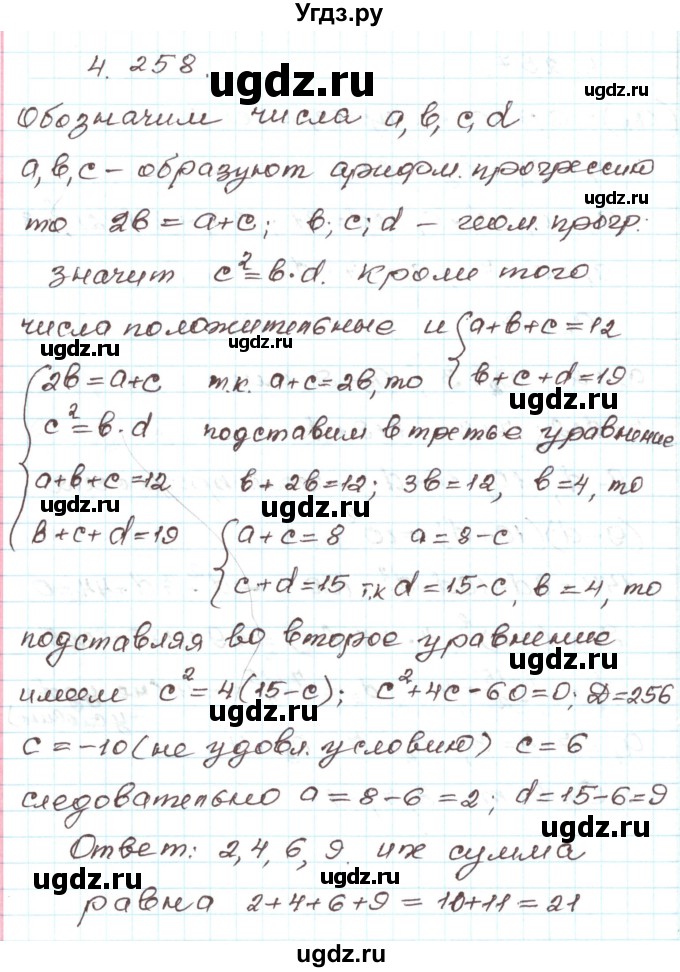 Угдз.ру
4. 258.
ugdz.ru
Обозначим числа a, b, c, d.
ugdz.ru
a, b, c – образуют арифм. прогрессию
то 2b = a+c; b; c; d – геом. прогр.
ugdz.ru
значит c² = b·d. Кроме того
числа положительные и { a+b+c = 12
ugdz.ru ugdz.ru
{ 2b = a+c т.к. a+c = 2b, то { b+c+d = 19
ugdz.ru
c² = b·d подставим в третье уравнение
a+b+c = 12 b + 2b = 12; 3b = 12, b = 4, то
ugdz.ru ugdz.ru ugdz.ru
b+c+d = 19 { a+c = 8 a = 8-c
c+d = 15 т.к d = 15-c, b = 4, то
ugdz.ru
подставляя во второе уравнение
ugdz.ru
имеем c² = 4(15-c); c² + 4c - 60 = 0; Д = 256
ugdz.ru
c = -10 (не удовл. условию) c = 6
ugdz.ru
следовательно a = 8-6 = 2; d = 15-6 = 9
ugdz.ru
Ответ: 2, 4, 6, 9 их сумма
ugdz.ru ugdz.ru
равна 2+4+6+9 = 10+11 = 21
ugdz.ru